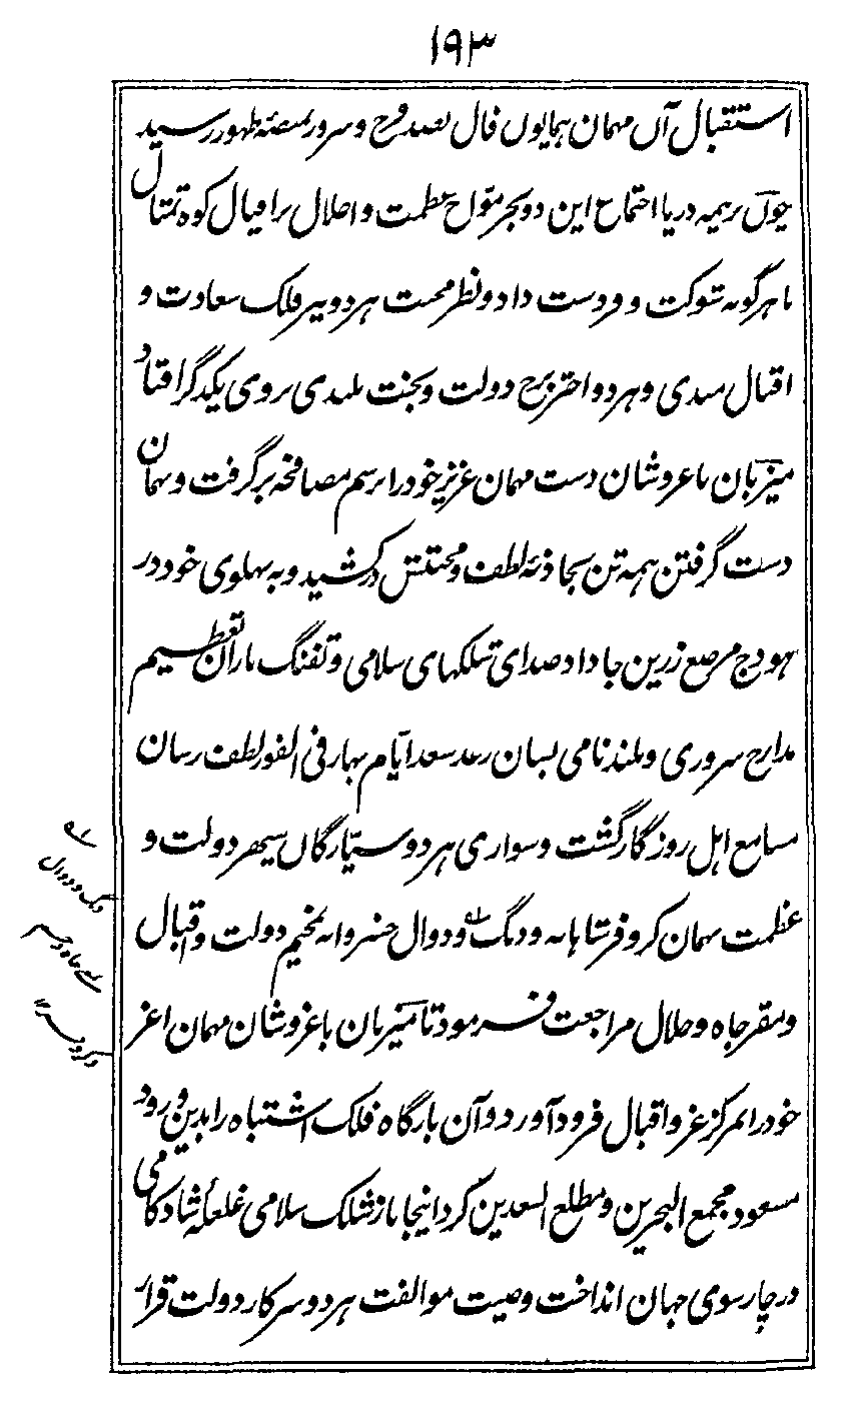 ۱۹۳
استقبال آں مہمان ہمایوں فال بصد فرح و سرور بمنصۂ ظہور رسید
چوں برہمہ دریا اجتماع این دو بحر موّاج عظمت و اجلال برافیال کوہ تمثال
باہرگونہ شوکت و فر دست داد و نظر محبت ہر دو نیر فلک سعادت و
اقبال مندی و ہر دو اختر برج دولت و بخت بلندی بروی یکدگر افتاد
میزبان باعز و شان دست مہمان عزیز خود را برسم مصافحہ بر گرفت و بہمان
دست گرفتن ہمہ تن بجاذبۂ لطف و محبتش در کشید و بہ پہلوی خود در
ہودج مرصع زرین جا داد صدای شلکہای سلامی و تفنگ باران تعظیم
مدارج سروری و بلند نامی بسان رعد سعد ایّام بہار فی الفور لطف رسان
مسامع اہل روزگار گشت و سواری ہر دو سیّارگاں سپہر دولت و
عظمت بہمان کر و فر شاہانہ و دنگ و دوال خسروانہ بمخیم دولت و اقبال
و مقر جاہ و جلال مراجعت فرمود تا میزبان باعز و شان مہمان اعز
خود را بمرکز عز و اقبال فرود آورد و آن بارگاہ فلک اشتباہ را بدین ورود
مسعود مجمع البحرین و مطلع السعدین کرد اینجا باز شلک سلامی غلغلۂ شادکامی
در چار سوی جہان انداخت و صیت موالفت ہر دو سرکار دولت قرار
دنگ و دوال